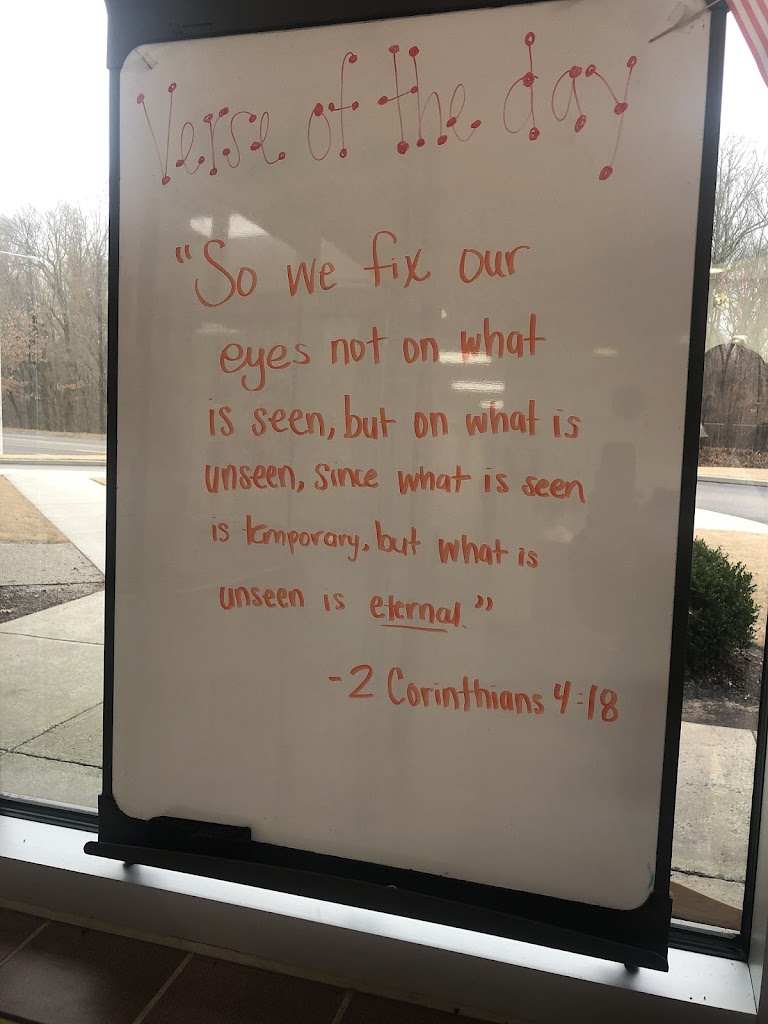 Verse of the day
"So we fix our
eyes not on what
is seen, but on what is
unseen, since what is seen
is temporary, but what is
unseen is eternal."
-2 Corinthians 4:18